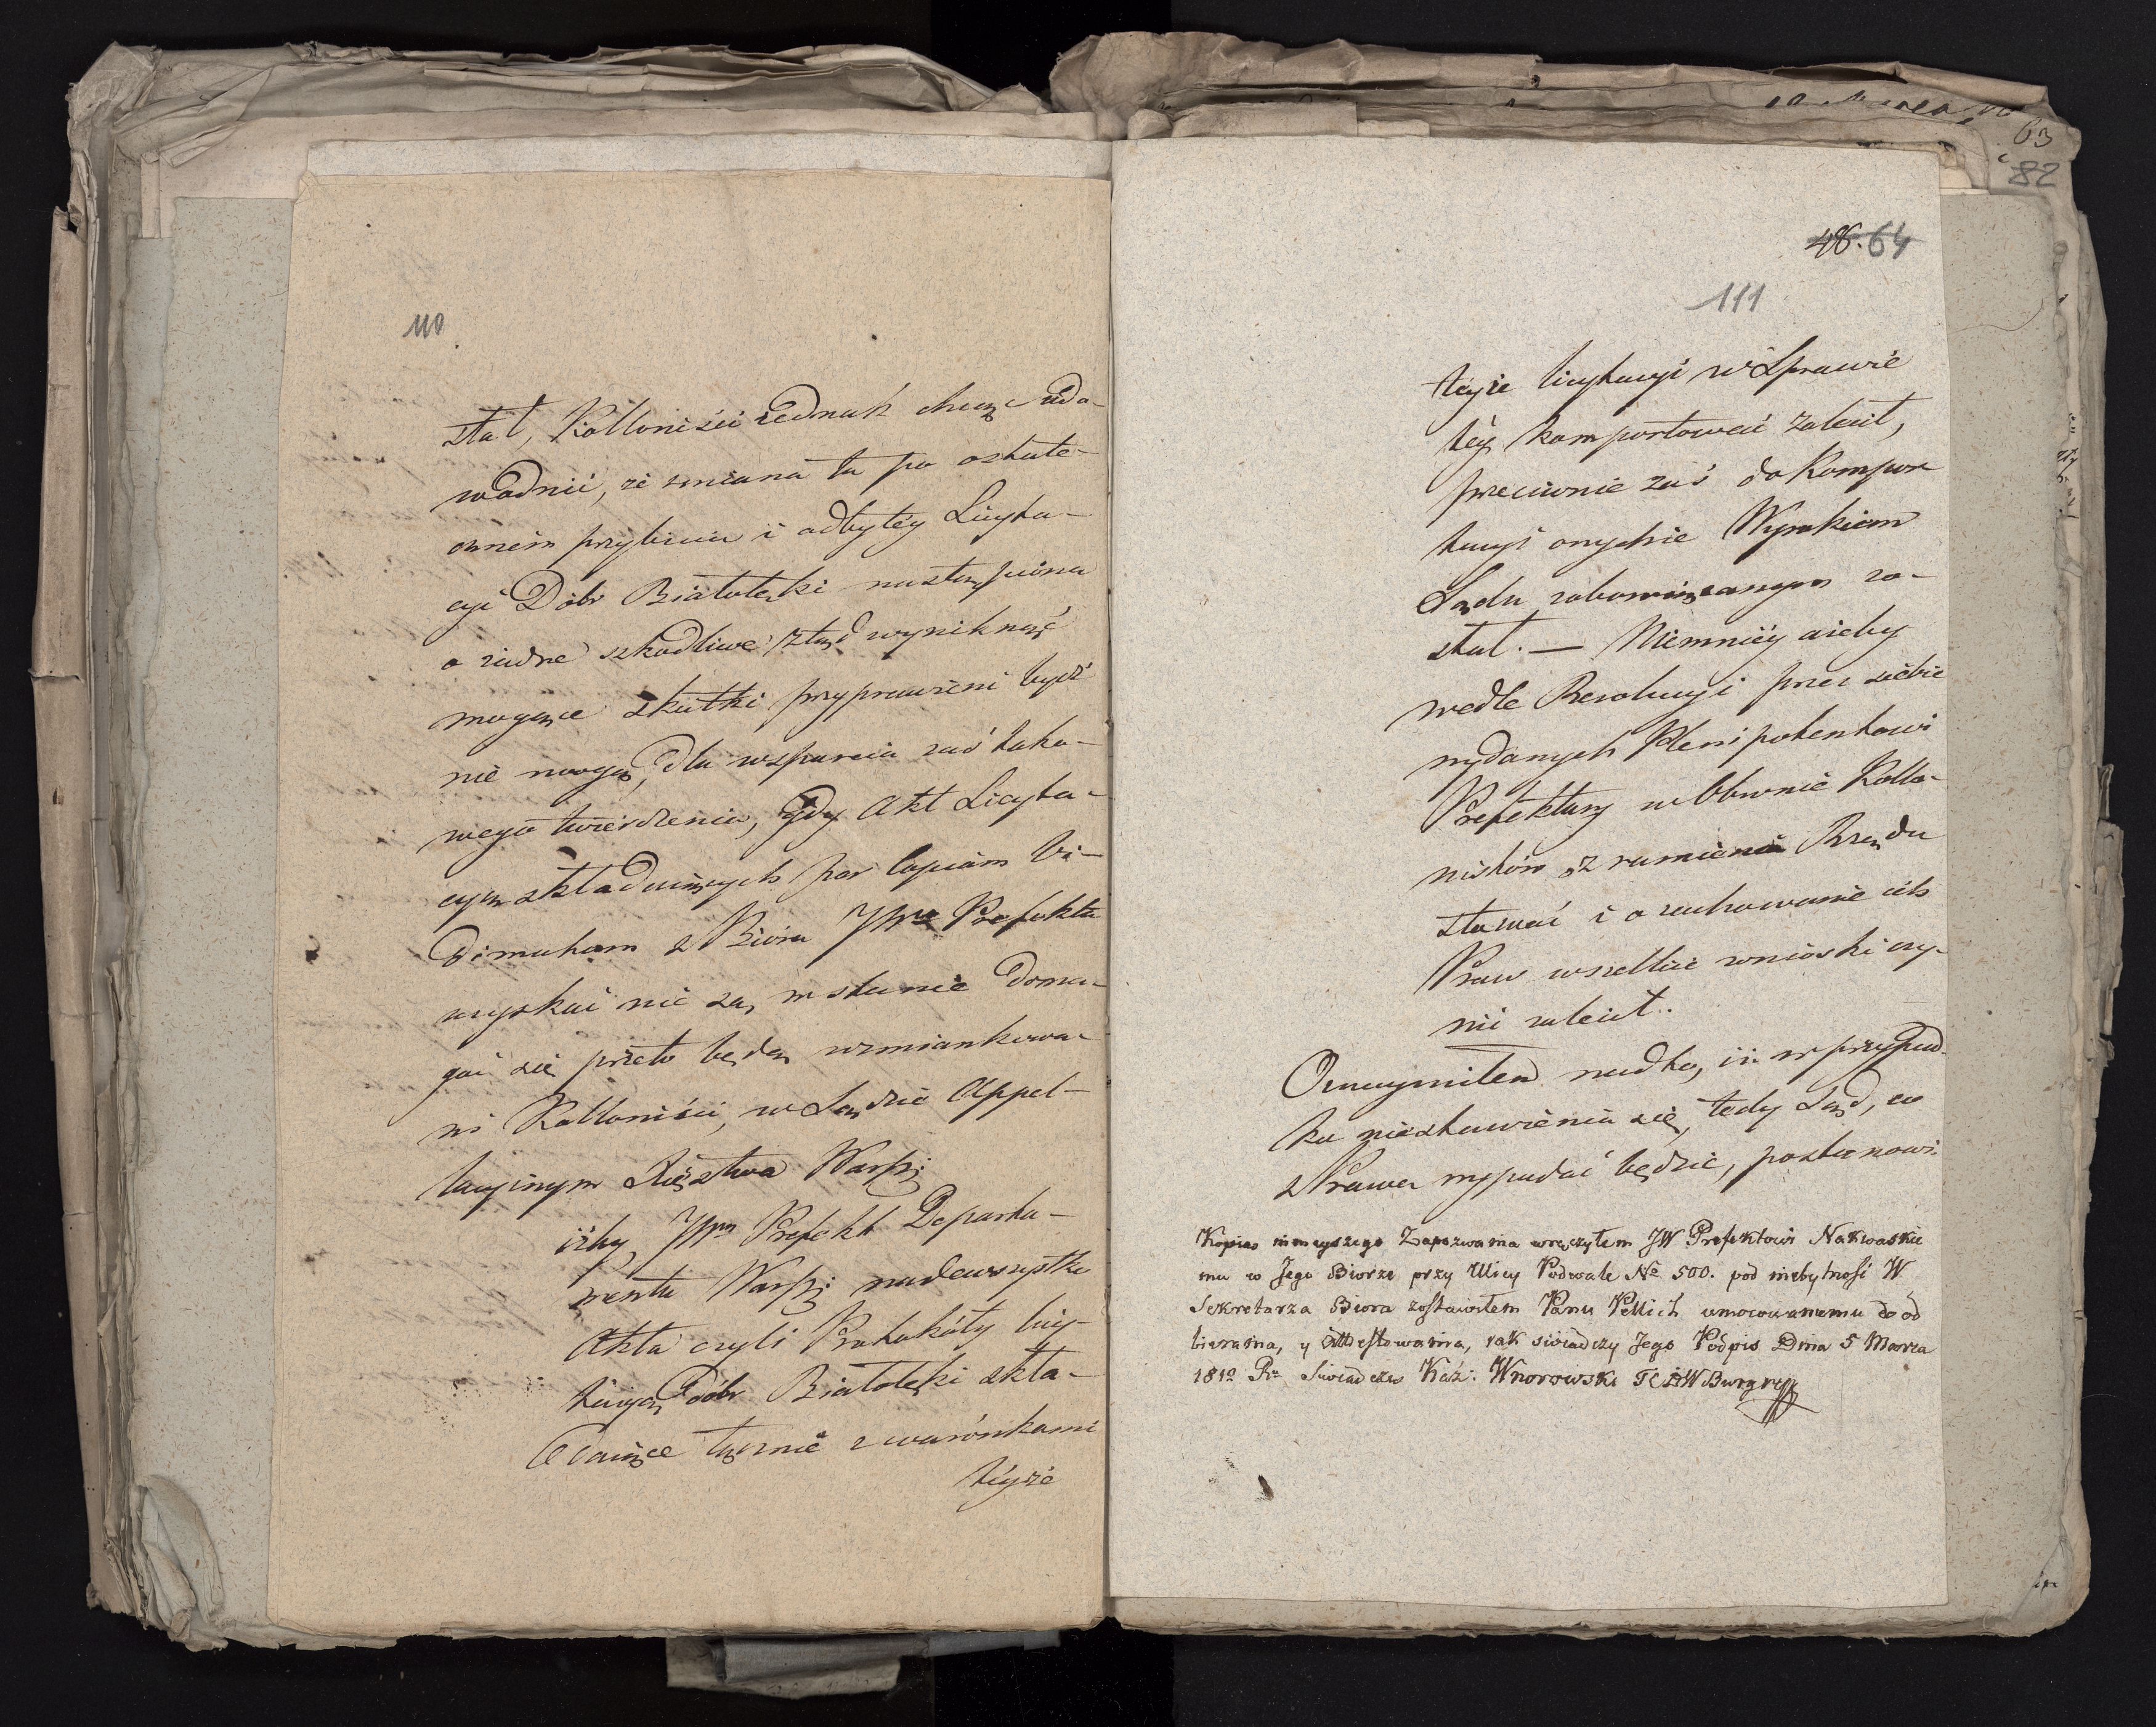 110
stał, Kolloniści iednak chcąc udo-
wodnić, że zmiana ta po oskute-
cznem przybiciu i odbytéy Licyta-
cyi Dóbr Białołęki nastąpiona
o żadne szkodliwe ztąd wyniknąć
mogące skutki przyprawieni bydź
nie mogą, dla wsparcia zaś tako-
wego twierdzenia, gdy Akt Licyta-
cyą składaiących par Copiam Vi-
dimatam z Bióra JW Prefekta
uzyskać nie są w stanie doma-
gać się przeto będą wzmiankowa-
ni Kolloniści, w Sądzie Appel-
lacyinym Xięstwa Warsz:
iżby JWny Prefekt Departa-
mentu Warsz: nadewszystko
Akta czyli Protokóły licy-
tacyą Dóbr Białołęki skła-
daiące łącznie z warónkami
téyże
63
82
48. 64
111
téyże licytacyi w Sprawie
téy komportować zalecił,
przeciwnie zaś do kompor
tacyi onychże Wyrokiem
Sądu zobowiązanym zo-
stał. — Niemniéy ażeby
wedle Rezolucyi przez siebie
wydanych Plenipotentowi
Prefektury w Obronie Kollo-
nistów z ramienia Rządu
stawać i o zachowanie ich
Praw wszelkie wnioski czy-
nić zalecił.
Oznaymiłem nadto, iż w przypad-
ku niestawienia się, tedy Sąd, co
z Prawa wypadać będzie, postanowi.
Kopią ninieyszego Zapozwania wręczyłem JW Prefektowi Nakwaskie
mu w Jego Biorze przy Ulicy Podwale No 500. pod niebytność W
Sekretarza Biora zostawiłem Panu Pellich umocowanemu do od
bierania, y Attestowania, iak świadczy Jego Podpis Dnia 5 Marca
1812 Ro Świadczę Kaź: Wnorowski